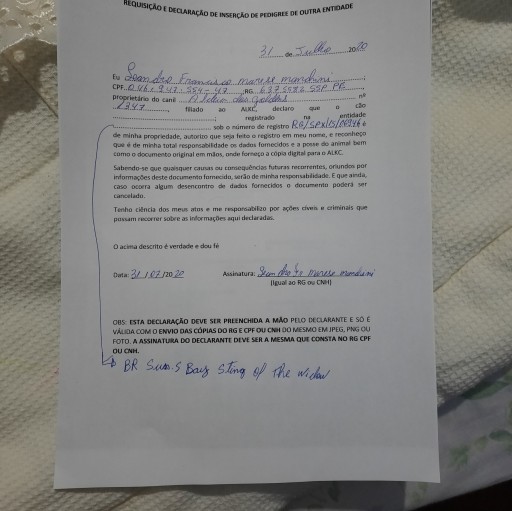 REQUISIÇÃO E DECLARAÇÃO DE INSERÇÃO DE PEDIGREE DE OUTRA ENTIDADE
31 de Julho 2020
Eu Leandro Francisco marese manduni
CPF RG SSP PR
proprietário do canil Aldeia dos goldens nº
2347, filiado ao ALKC, declaro que o cão
, registrado na entidade
sob o número de registro
de minha propriedade, autorizo que seja feito o registro em meu nome, e reconheço
que é de minha total responsabilidade os dados fornecidos e a posse do animal bem
como o documento original em mãos, onde forneço a cópia digital para o ALKC.
Sabendo-se que quaisquer causas ou consequências futuras recorrentes, oriundos por
informações deste documento fornecido, serão de minha responsabilidade. E que ainda,
caso ocorra algum desencontro de dados fornecidos o documento poderá ser
cancelado.
Tenho ciência dos meus atos e me responsabilizo por ações cíveis e criminais que
possam recorrer sobre as informações aqui declaradas.
O acima descrito é verdade e dou fé
Data: 31/07/2020 Assinatura: Leandro Fco marese manduni
(Igual ao RG ou CNH)
OBS: ESTA DECLARAÇÃO DEVE SER PREENCHIDA A MÃO PELO DECLARANTE E SÓ É
VÁLIDA COM O ENVIO DAS CÓPIAS DO RG E CPF OU CNH DO MESMO EM JPEG, PNG OU
FOTO. A ASSINATURA DO DECLARANTE DEVE SER A MESMA QUE CONSTA NO RG CPF
OU CNH.
BR Sum.S Bay Sting of the widow